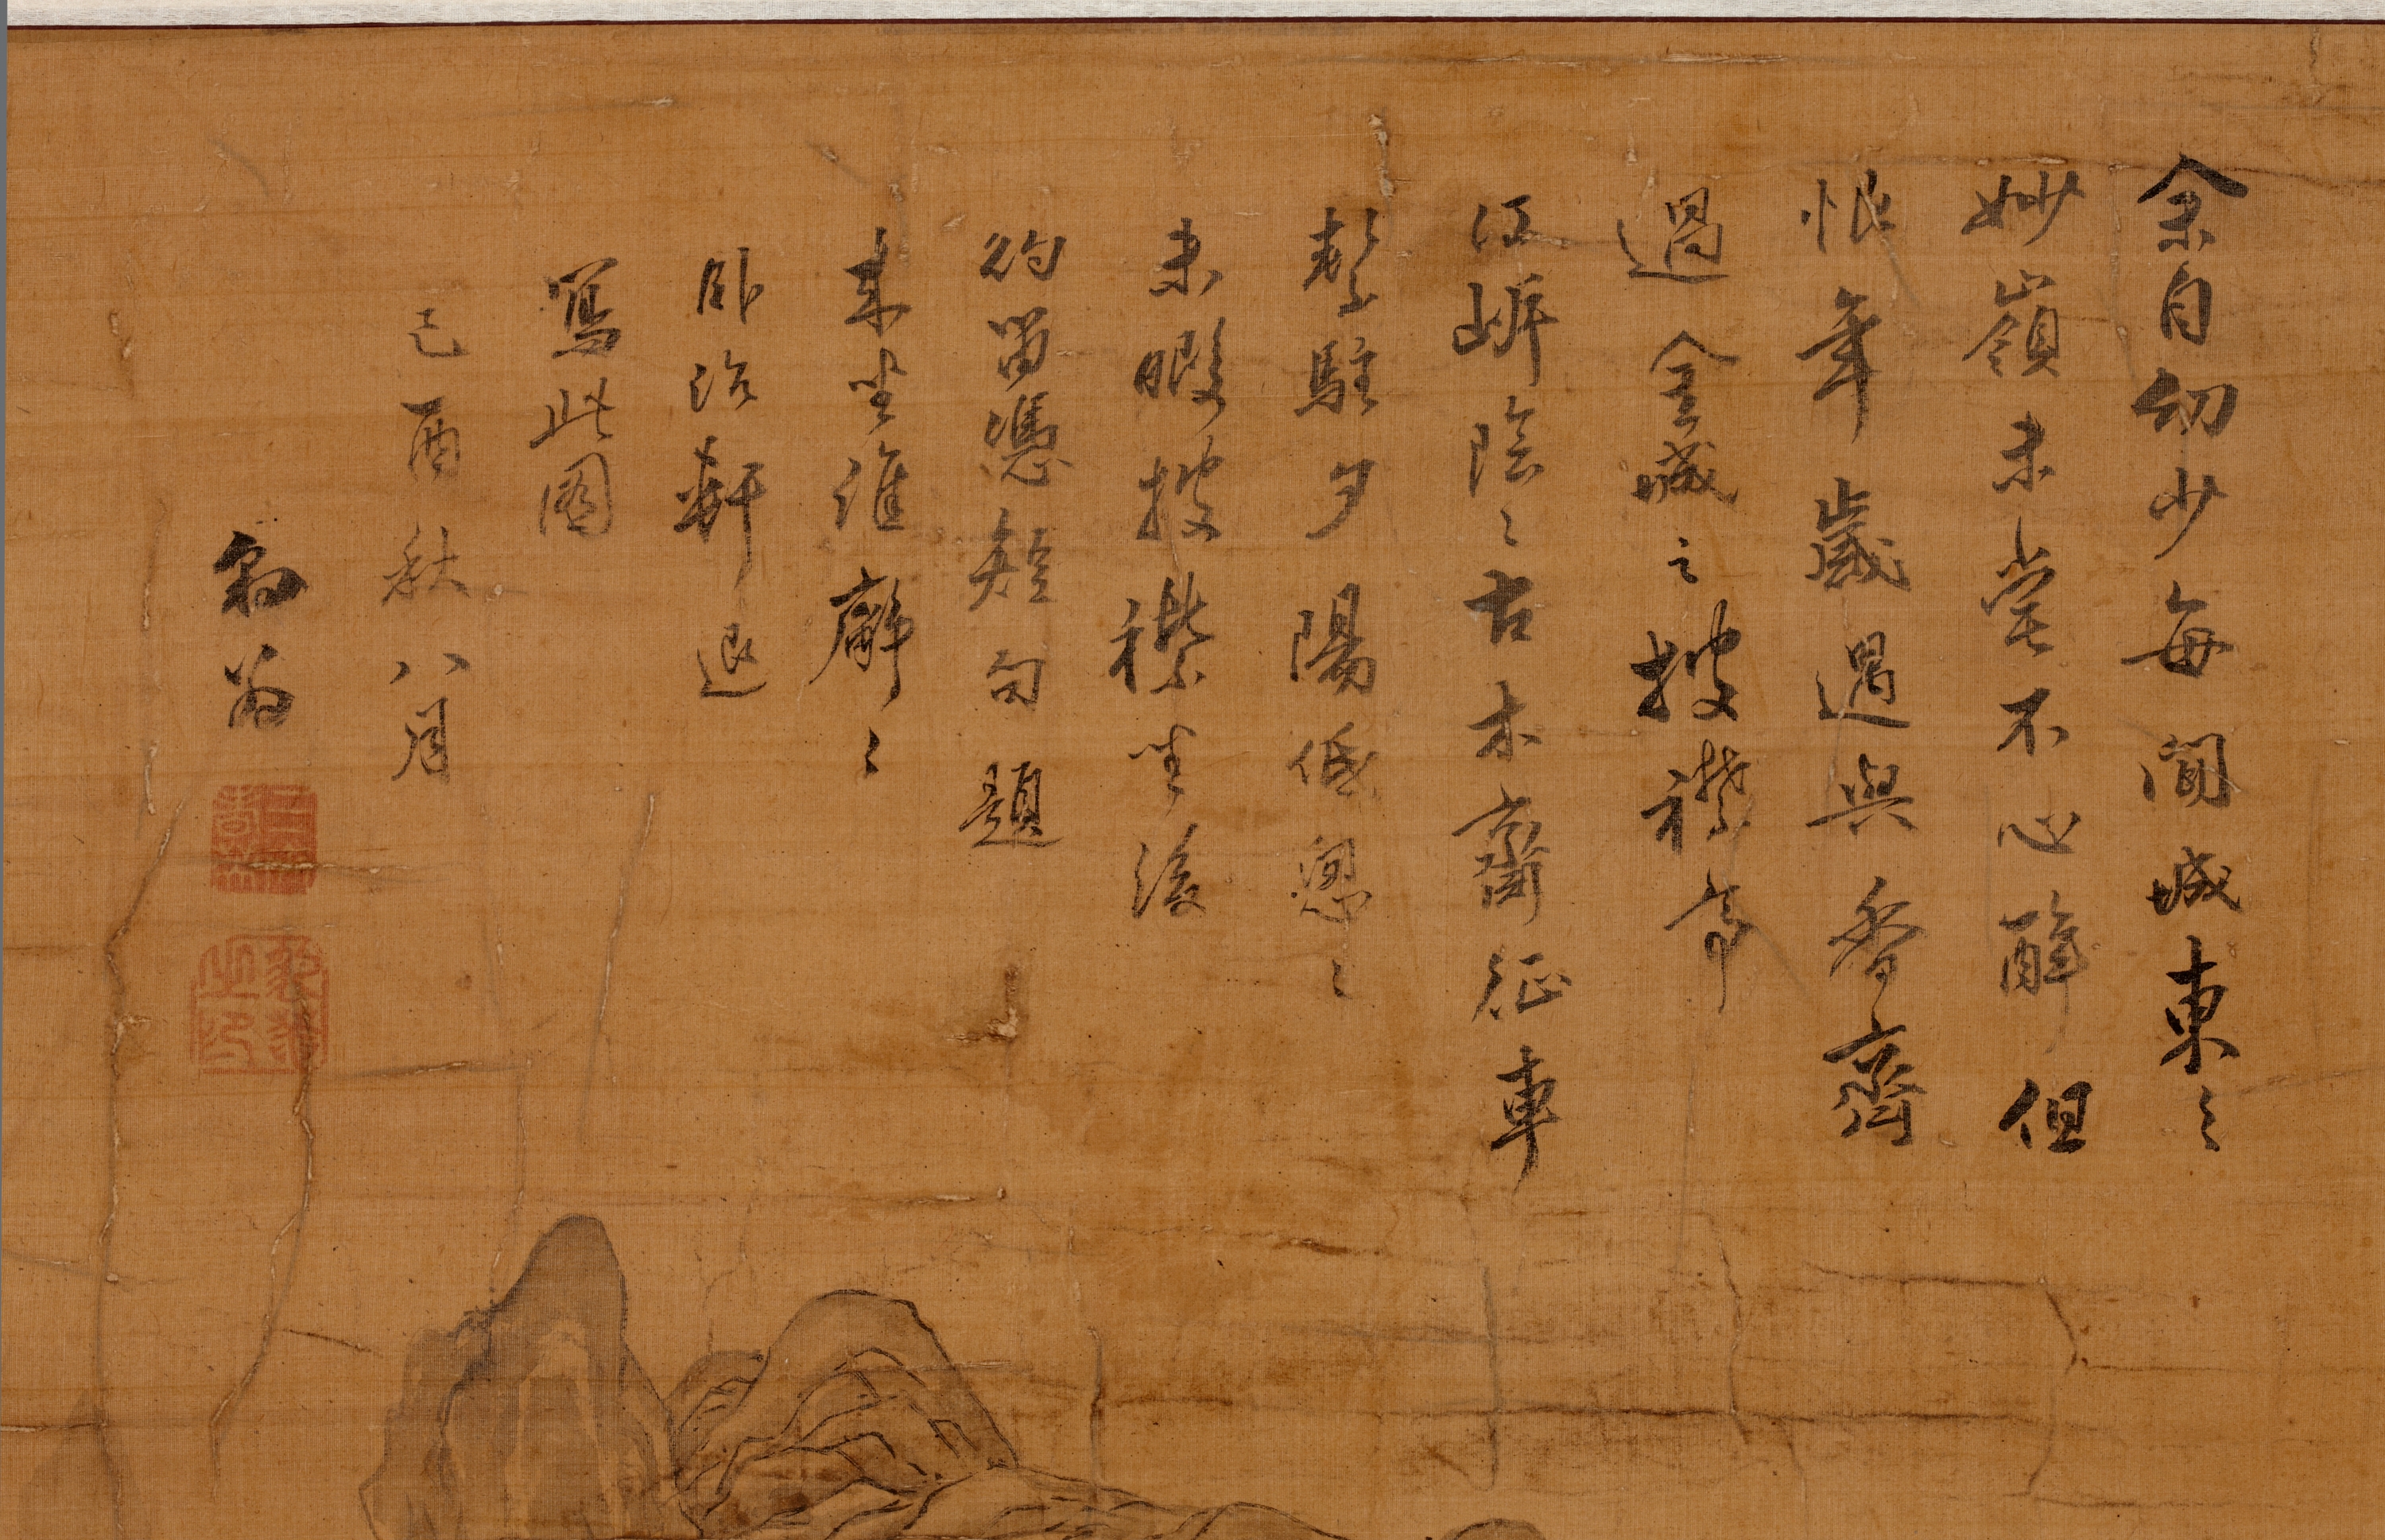 余自幼少每聞城東之
妙嶺未嘗不心醉但
恨年歲過與香齋
過金城之披襟亭
江岍陰〻古木齋征車
暫駐夕陽低怱〻
未暇披襟坐後
約留憑短句題
來坐維廨〻
卧治軒退
寫此圖
己酉秋八月
豹翁